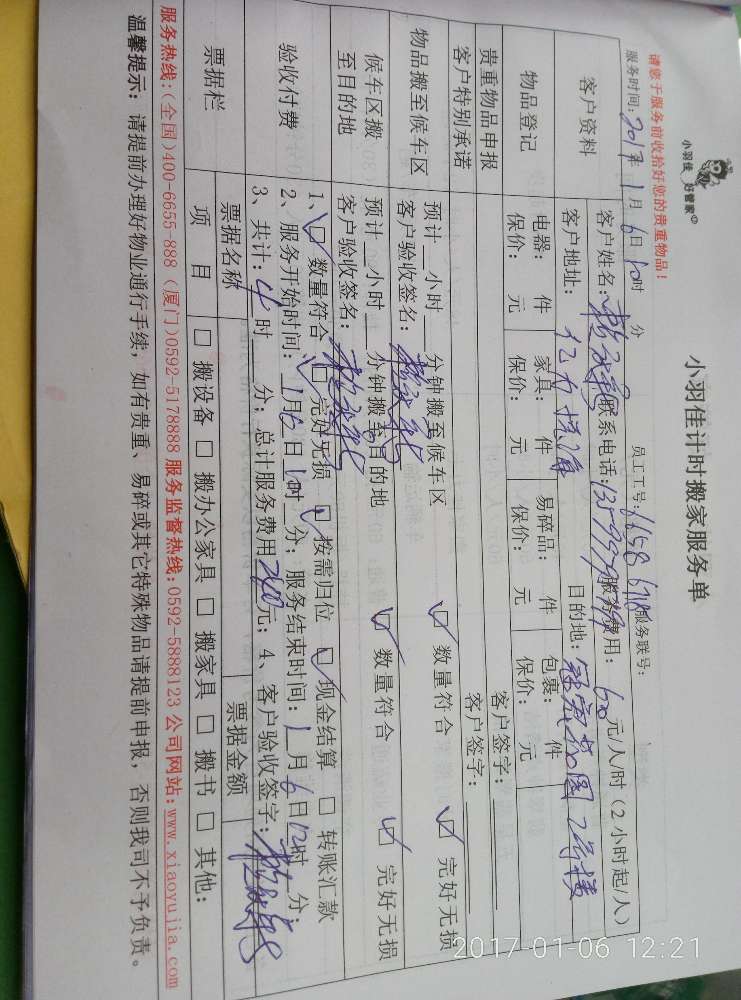 小羽佳 好管家®
小羽佳计时搬家服务单
请您于服务前收拾好您的贵重物品!
服务时间: 2017年 1月 6日 10时 分 员工工号: 服务联号:
客户资料
客户姓名: 联系电话: 服务费用: 60元/人/时(2小时起/人)
客户地址: 目的地: 2号楼
物品登记
电器: 件 家具: 件 易碎品: 件 包裹: 件
保价: 元 保价: 元 保价: 元 保价: 元
贵重物品申报 客户签字:
客户特别承诺 客户签字:
物品搬至候车区
预计 小时 分钟搬至候车区 ☑ 数量符合 ☑ 完好无损
客户验收签名:
候车区搬至目的地
预计 小时 分钟搬至目的地 ☑ 数量符合 ☑ 完好无损
客户验收签名:
验收付费
1、☑ 数量符合 ☑ 完好无损 ☑ 按需归位 ☑ 现金结算 □ 转账汇款
2、服务开始时间: 1月6日10时 分; 服务结束时间: 1月6日12时 分;
3、共计: 4时 分; 总计服务费用240元; 4、客户验收签字:
票据栏
票据名称 票据金额
项 目 □ 搬设备 □ 搬办公家具 □ 搬家具 □ 搬书 □ 其他:
服务热线:(全国)400-6655-888 (厦门)0592-5178888 服务监督热线:0592-5888123 公司网站:www.xiaoyujia.com
温馨提示: 请提前办理好物业通行手续, 如有贵重、易碎或其它特殊物品请提前申报, 否则我司不予负责。
2017-01-06 12:21